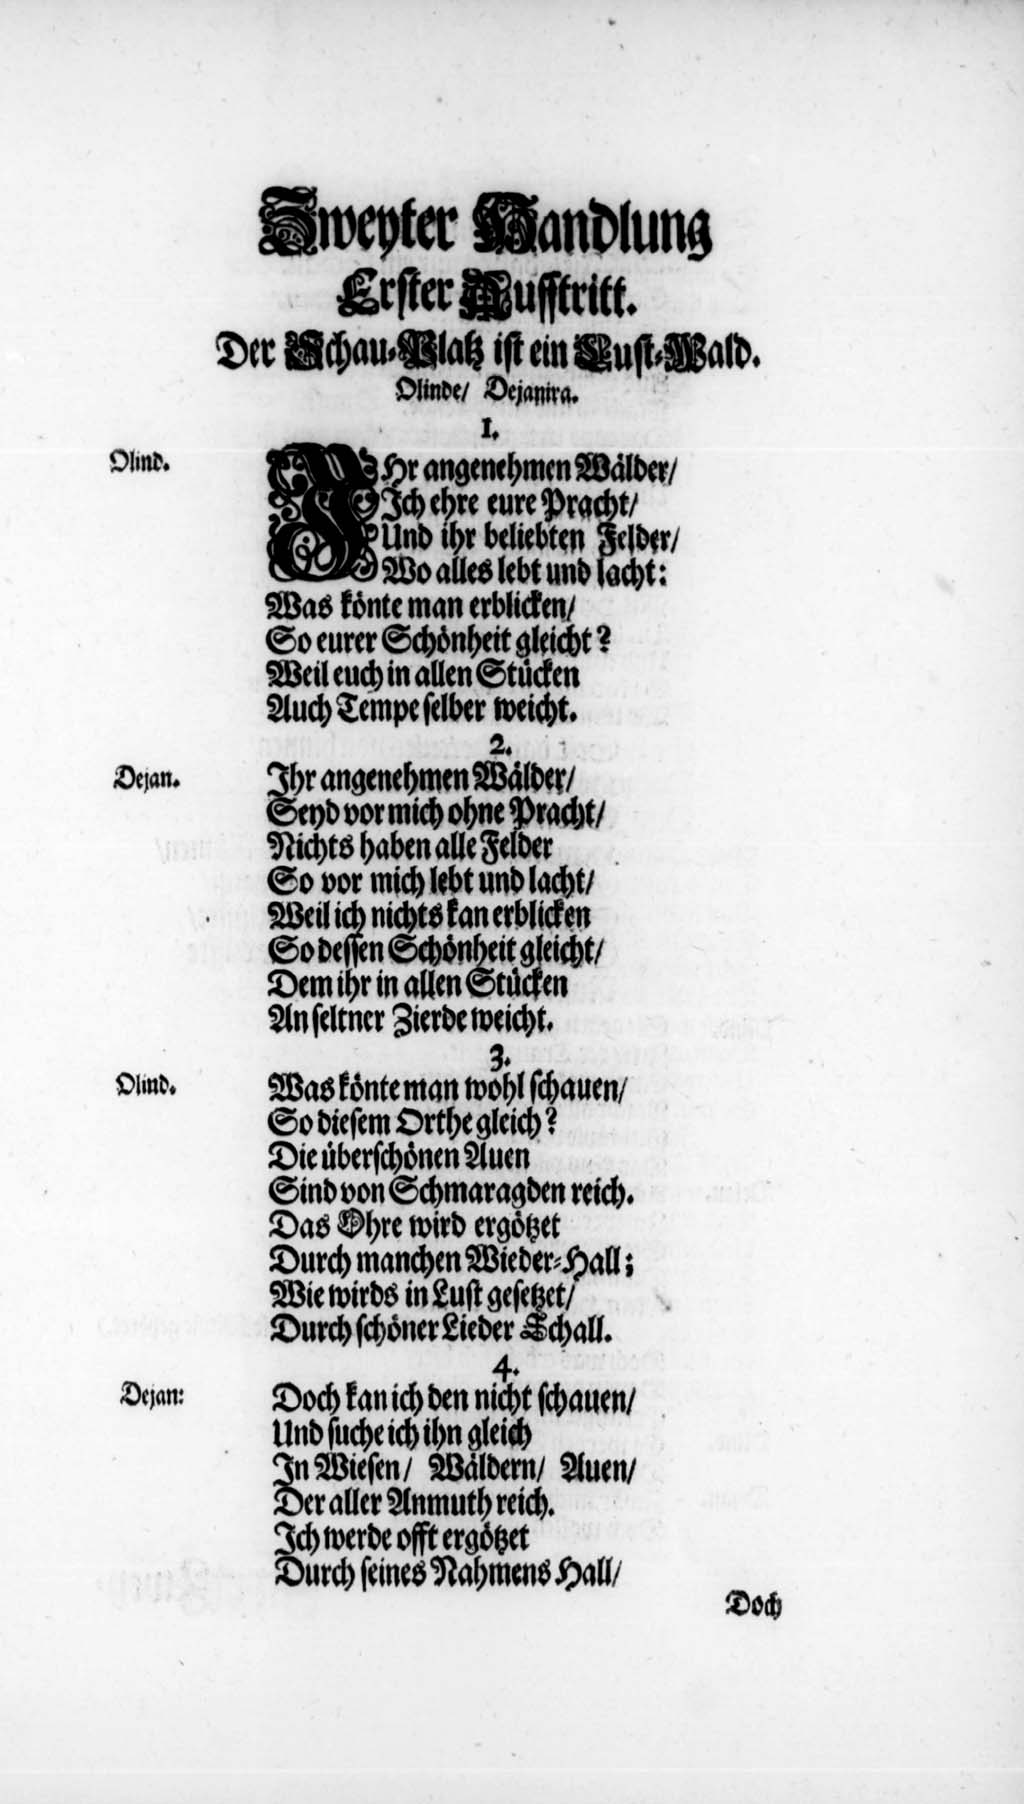 Zweyter Handlung
Erster Aufftritt.
Der Schau-Platz ist ein Lust-Wald.
Olinde/ Dejanira.
1.
Olind. IHr angenehmen Wälder/
Ich ehre eure Pracht/
Und ihr beliebten Felder/
Wo alles lebt und lacht:
Was könte man erblicken/
So eurer Schönheit gleicht?
Weil euch in allen Stücken
Auch Tempe selber weicht.
2.
Dejan. Ihr angenehmen Wälder/
Seyd vor mich ohne Pracht/
Nichts haben alle Felder
So vor mich lebt und lacht/
Weil ich nichts kan erblicken
So dessen Schönheit gleicht/
Dem ihr in allen Stücken
An seltner Zierde weicht.
3.
Olind. Was könte man wohl schauen/
So diesem Orthe gleich?
Die überschönen Auen
Sind von Schmaragden reich.
Das Ohre wird ergötzet
Durch manchen Wieder-Hall;
Wie wirds in Lust gesetzet/
Durch schöner Lieder Schall.
4.
Dejan: Doch kan ich den nicht schauen/
Und suche ich ihn gleich
In Wiesen/ Wäldern/ Auen/
Der aller Anmuth reich.
Ich werde offt ergötzet
Durch seines Nahmens Hall/
Doch